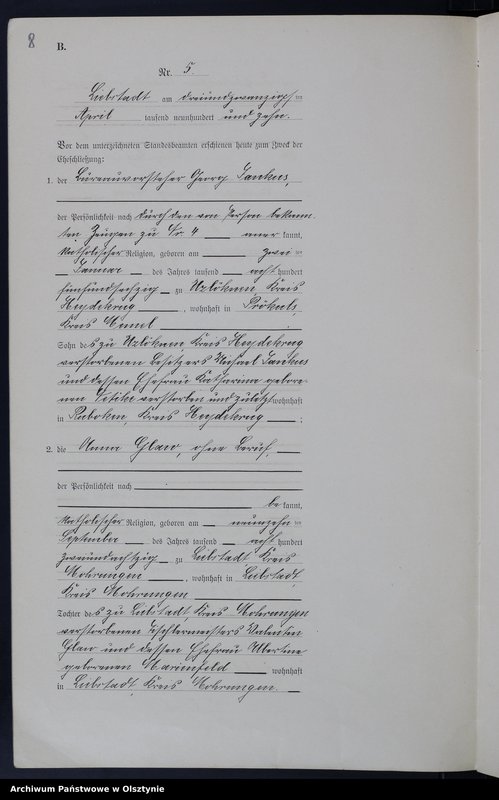 8
B.
Nr. 5.
Liebstadt am dreiundzwanzigsten
April tausend neunhundert und zehn.
Vor dem unterzeichneten Standesbeamten erschienen heute zum Zweck der
Eheschließung:
1. der Büreauvorsteher Georg Jankus,
der Persönlichkeit nach durch den von Person bekann-
ten Zeugen zu Nr. 4 aner kannt,
katholischer Religion, geboren am zwei ten
Januar des Jahres tausend acht hundert
fünfundsechzig zu Uzlöknen, Kreis
Heydekrug, wohnhaft in Prökuls,
Kreis Memel.
Sohn des zu Uzlöknen, Kreis Heydekrug
verstorbenen Besitzers Michael Jankus
und dessen Ehefrau Katharina gebore-
nen verstorben und zuletzt wohnhaft
in Kreis Heydekrug;
2. die Anna Glaw, ohne Beruf,
der Persönlichkeit nach
be kannt,
katholischer Religion, geboren am neunzehn ten
September des Jahres tausend acht hundert
zweiundachtzig zu Liebstadt Kreis
Mohrungen, wohnhaft in Liebstadt,
Kreis Mohrungen
Tochter des zu Liebstadt, Kreis Mohrungen
verstorbenen Tischlermeisters Valentin
Glaw und dessen Ehefrau Albertine
geborenen Marienfeld wohnhaft
in Liebstadt, Kreis Mohrungen.
Archiwum Państwowe w Olsztynie